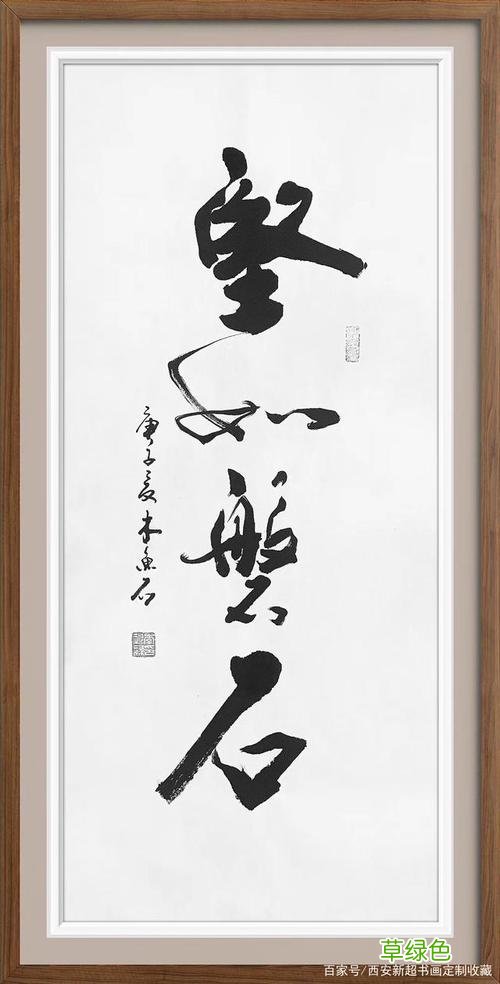 坚如磐石
庚子夏木鱼石
草绿色
百家号/西安新超书画定制收藏